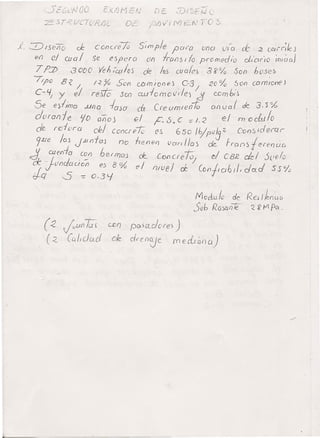 SEGUNDO EXAMEN DE DISEÑO
ESTRUCTURAL DE PAVIMENTOS
1. Diseño de concreto Simple para una via de 2 carriles
en el cual se espera un transito promedio diario inicial
TPD 3000 Vehiculos de los cuales 38% Son buses
Tipo B2, 12% Son camiones C-3, 20% Son camiones
C-4, y el resto son automoviles y combis
Se estima una tasa de Creumiento anual de 3.5%
durante 40 años el F.S.C = 1.2 el modulo
de rotura del concreto es 650 lb/pulg² Considerar
que las juntas no tienen varillas de transferencia
y cuenta con bermas de Concreto, el CBR del Suelo
de fundación es 8% el nivel de Confiabilidad 55%
S = 0.34
Modulo de Resiliencia
Sub Rasante 28MPa.
(2 juntas con pasadores)
(2 Calidad de drenaje mediana)